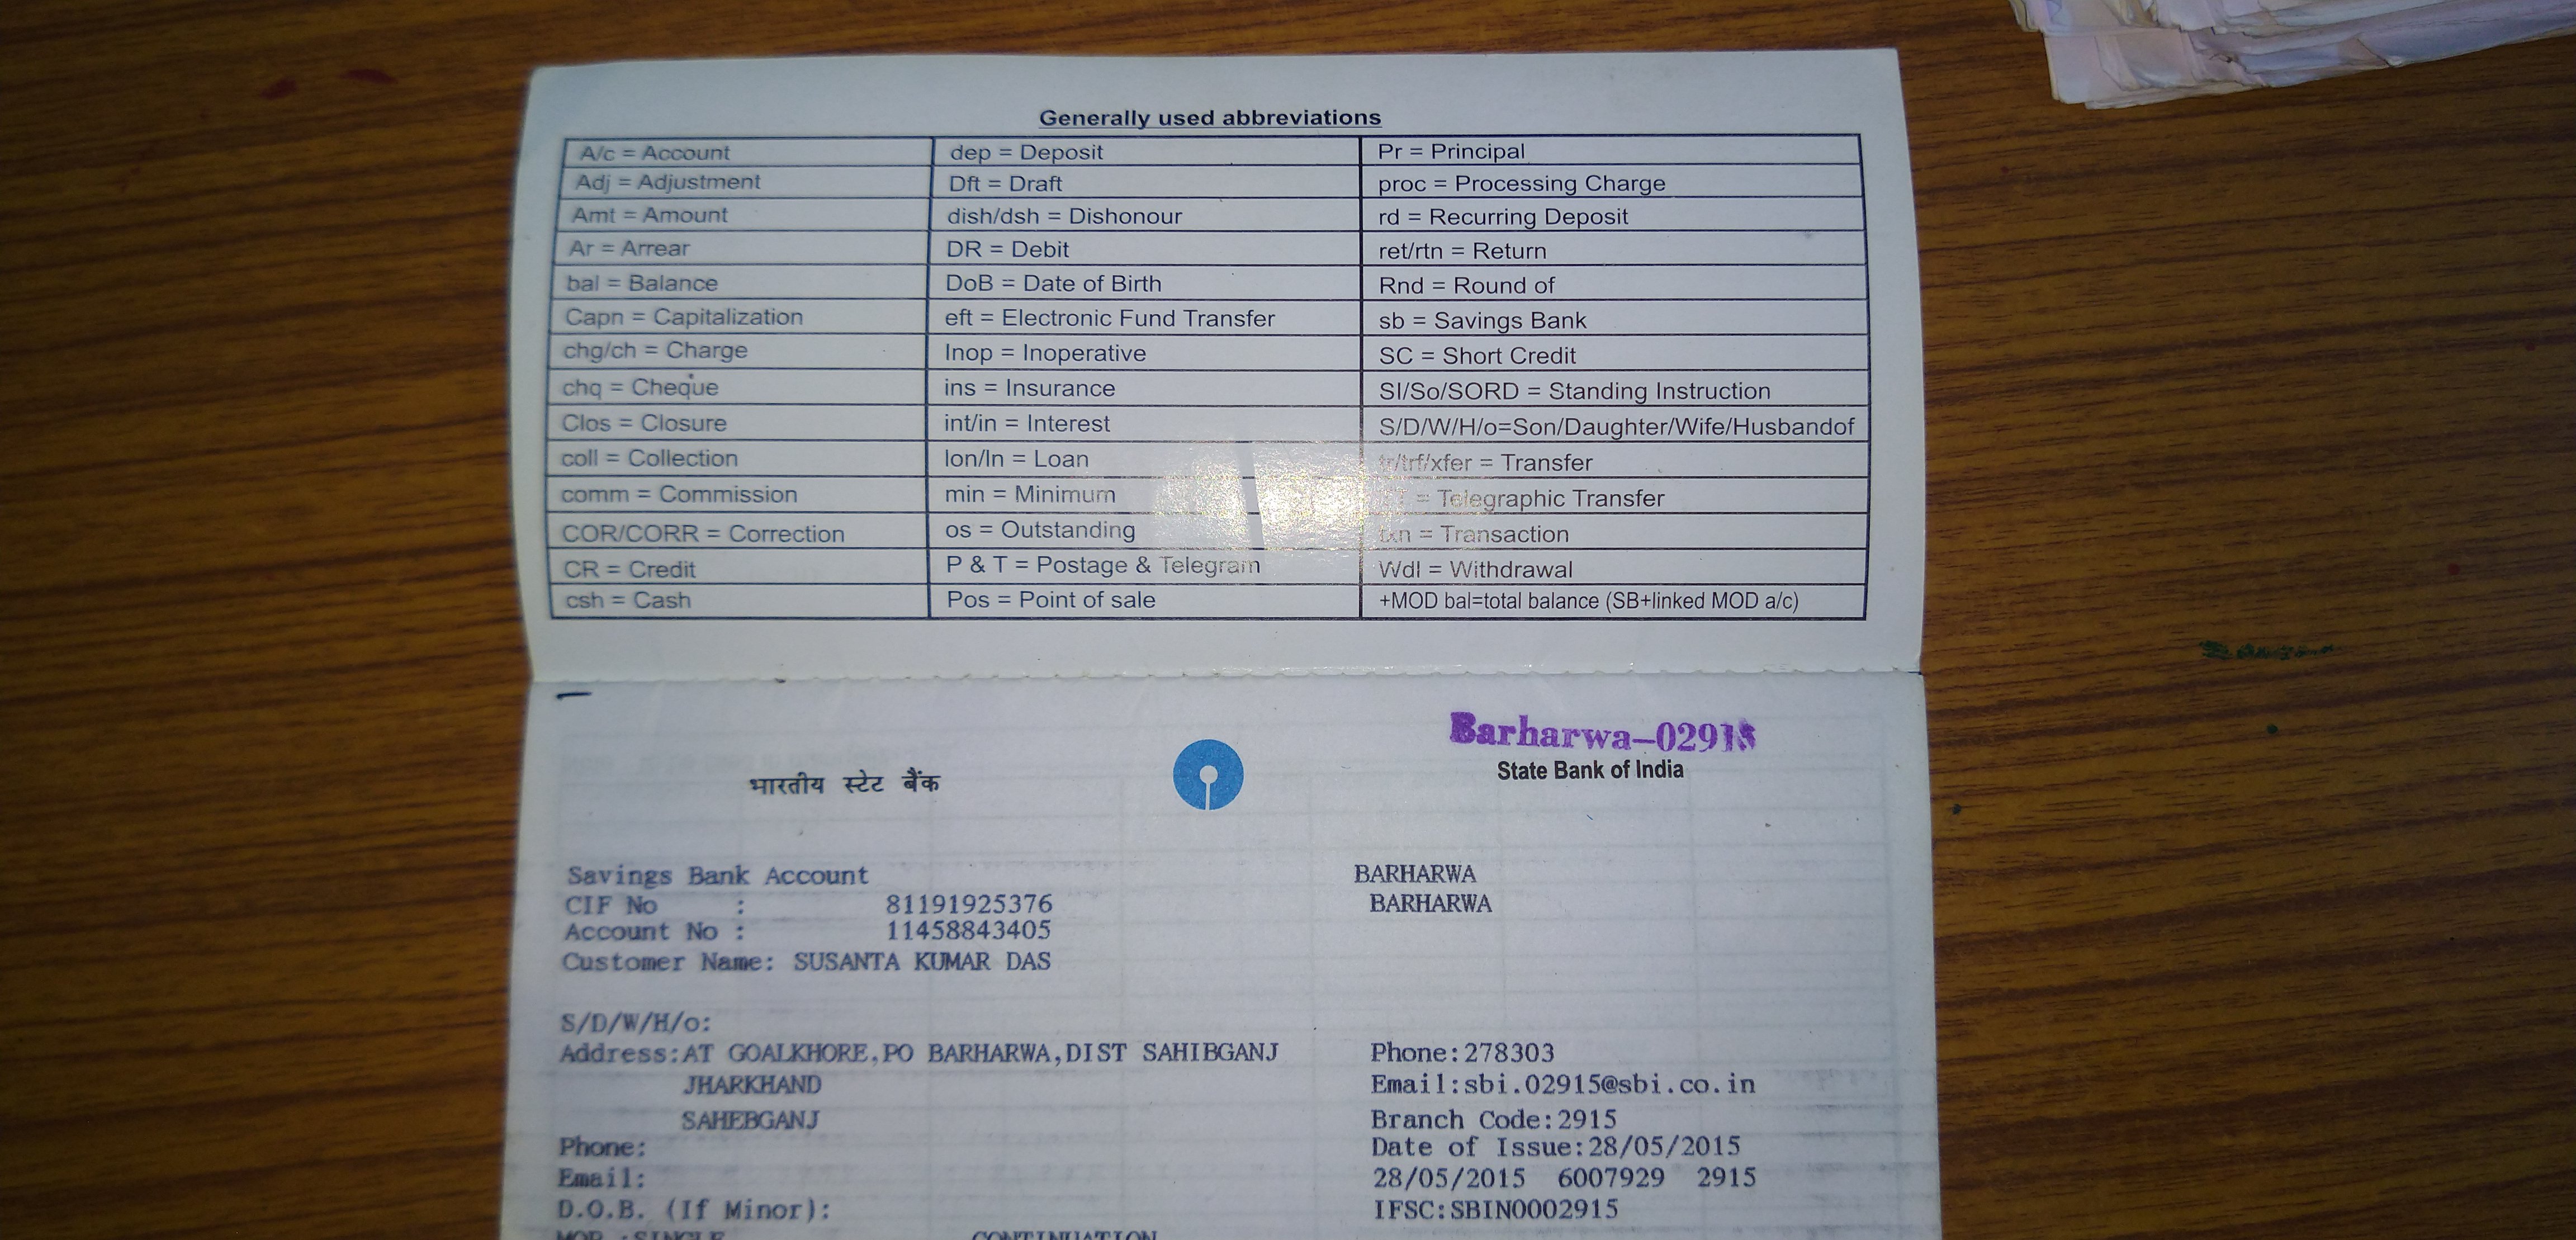 Generally used abbreviations
A/c = Account dep = Deposit Pr = Principal
Adj = Adjustment Dft = Draft proc = Processing Charge
Amt = Amount dish/dsh = Dishonour rd = Recurring Deposit
Ar = Arrear DR = Debit ret/rtn = Return
bal = Balance DoB = Date of Birth Rnd = Round of
Capn = Capitalization eft = Electronic Fund Transfer sb = Savings Bank
chg/ch = Charge Inop = Inoperative SC = Short Credit
chq = Cheque ins = Insurance SI/So/SORD = Standing Instruction
Clos = Closure int/in = Interest S/D/W/H/o=Son/Daughter/Wife/Husbandof
coll = Collection lon/ln = Loan tr/trf/xfer = Transfer
comm = Commission min = Minimum = Telegraphic Transfer
COR/CORR = Correction os = Outstanding txn = Transaction
CR = Credit P & T = Postage & Telegram Wdl = Withdrawal
csh = Cash Pos = Point of sale +MOD bal=total balance (SB+linked MOD a/c)
Barharwa-02915
भारतीय स्टेट बैंक State Bank of India
Savings Bank Account BARHARWA
CIF No : 81191925376 BARHARWA
Account No : 11458843405
Customer Name: SUSANTA KUMAR DAS
S/D/W/H/o:
Address:AT GOALKHORE,PO BARHARWA,DIST SAHIBGANJ Phone:278303
JHARKHAND Email:sbi.02915@sbi.co.in
SAHEBGANJ Branch Code:2915
Phone: Date of Issue:28/05/2015
Email: 28/05/2015 6007929 2915
D.O.B. (If Minor): IFSC:SBIN0002915
MOP :SINGLE CONTINUATION